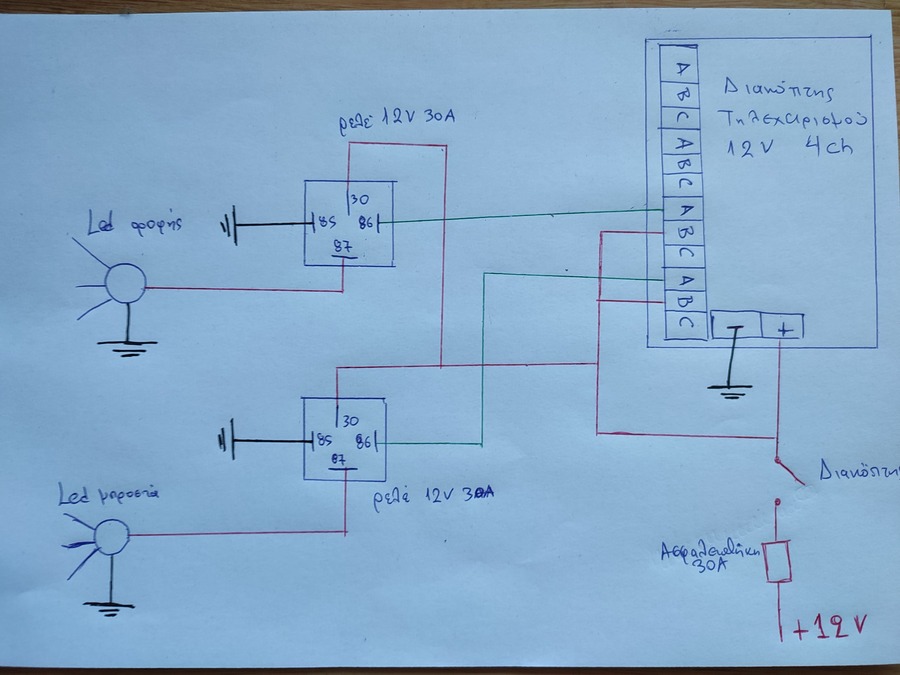 ρελέ 12V 30A
Led οροφής
30
85
86
87
A
B
C
A
B
C
A
B
C
A
B
C
Διακόπτης
Τηλεχειρισμού
12V 4ch
+
30
85
86
87
ρελέ 12V 30A
Led μπροστά
Διακόπτης
Ασφαλειοθήκη
30A
+12V